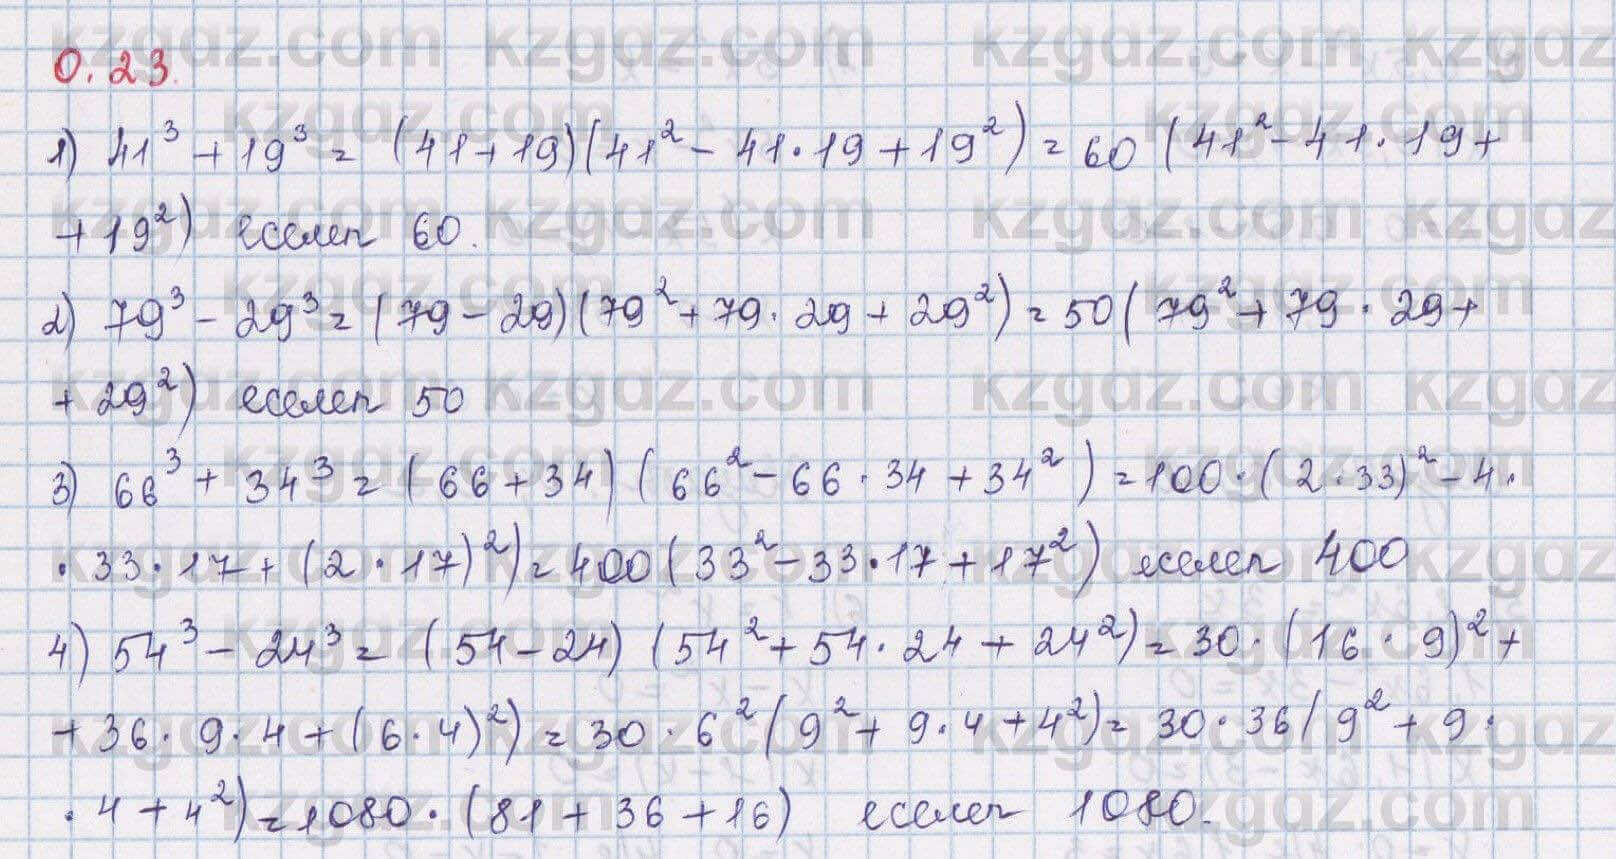 0.23.
1) 41³ + 19³ = (41 + 19)(41² - 41·19 + 19²) = 60 (41² - 41·19 +
+ 19²) еселеп 60.
2) 79³ - 29³ = (79 - 29)(79² + 79·29 + 29²) = 50 (79² + 79·29 +
+ 29²) еселеп 50
3) 66³ + 34³ = (66 + 34)(66² - 66·34 + 34²) = 100·(2·33)² - 4·
·33·17 + (2·17)²) = 400 (33² - 33·17 + 17²) еселеп 400
4) 54³ - 24³ = (54 - 24)(54² + 54·24 + 24²) = 30·(16·9)² +
+ 36·9·4 + (6·4)²) = 30·6² (9² + 9·4 + 4²) = 30·36 (9² + 9·
·4 + 4²) = 1080·(81 + 36 + 16) еселеп 1080.
kzgdz.com